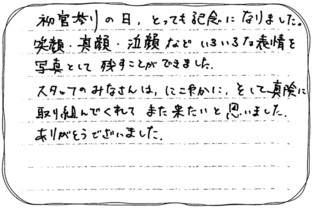 初宮参りの日、とっても記念になりました。
笑顔・真顔・泣顔などいろいろな表情を
写真として残すことができました。
スタッフのみなさんは、にこやかに、そして真険に
取り組んでくれてまた来たいと思いました。
ありがとうございました。